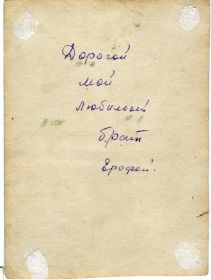 Дорогой
мой
Любимый
брат
Ерофей.